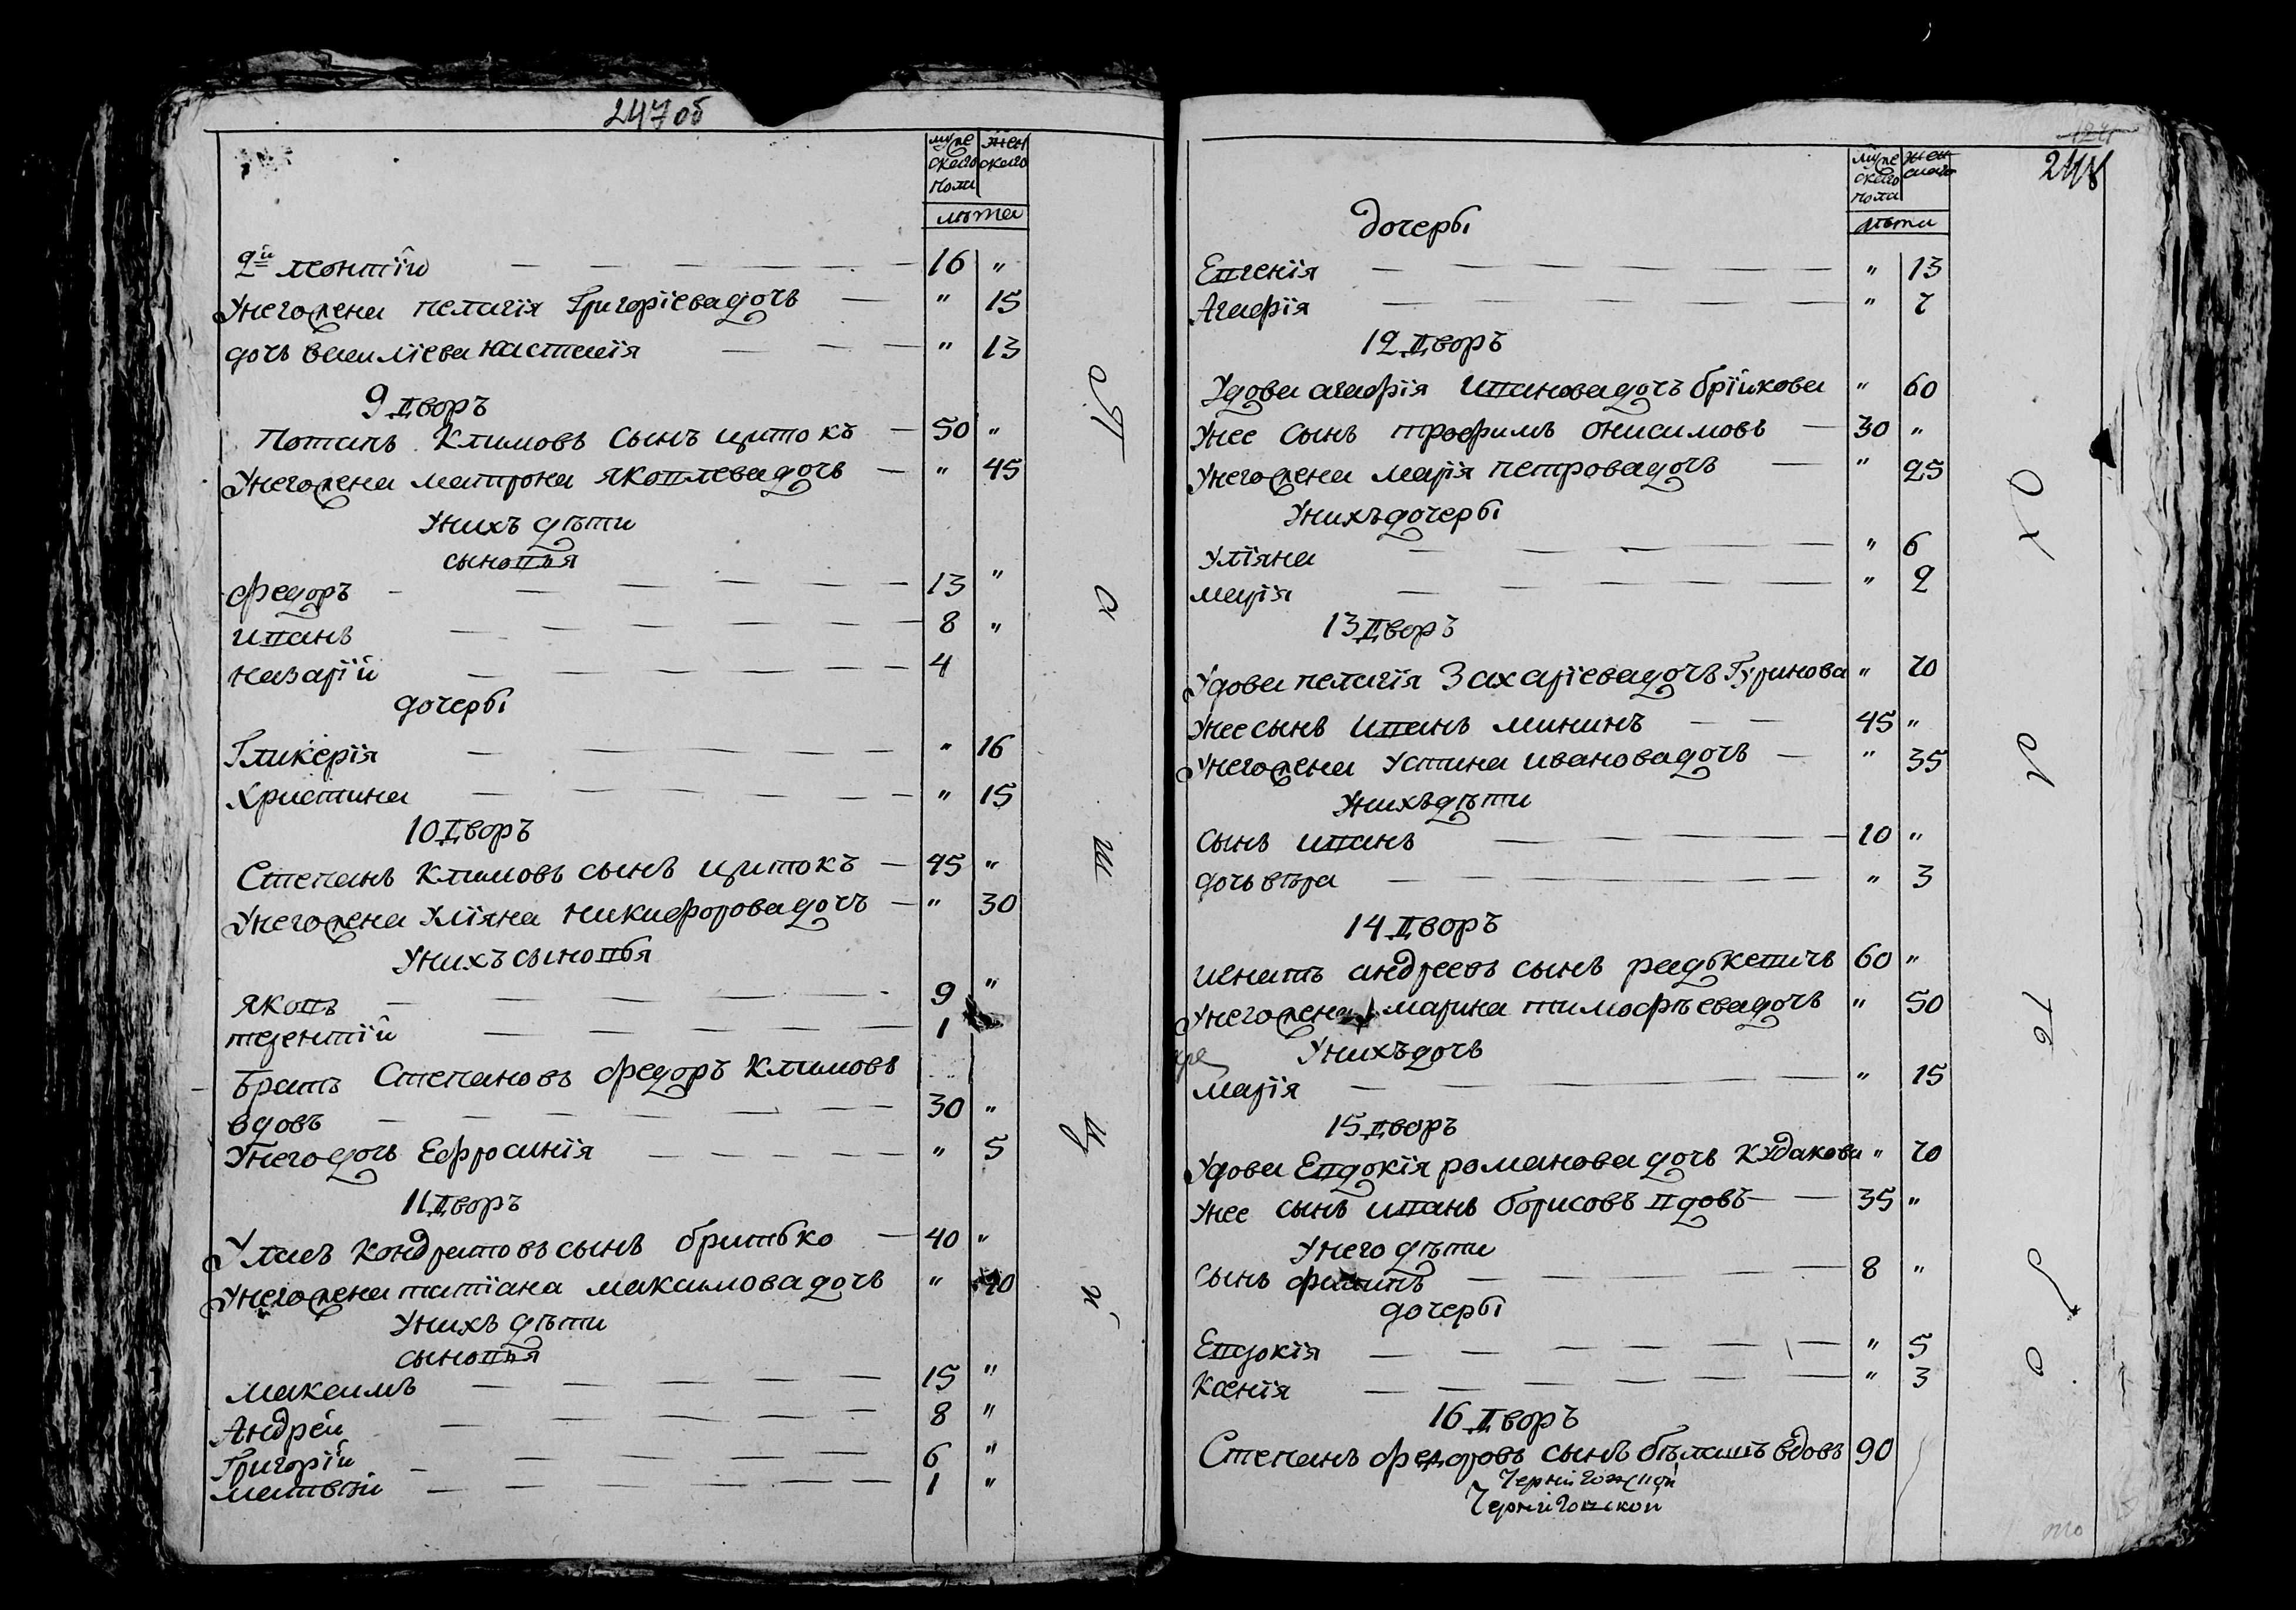 247 об
муже женскаго скаго пола
лѣта
2й леонтій 16 "
Унего жена пелагія Григоріева дочь " 15
дочь василіева настасія " 13
9 дворъ
Потапъ Климовъ сынъ щитокъ 50 "
Унего жена матрона яковлева дочь " 45
Унихъ дѣти
сыновья
федоръ 13 "
иванъ 8 "
назарій 4
дочери
Гликерія " 16
Христина " 15
10 дворъ
Степанъ Климовъ сынъ щитокъ 45 "
Унего жена Уліяна никифорова дочь " 30
Унихъ сыновья
яковъ 9 "
терентій 1
Братъ Степановъ федоръ Климовъ
вдовъ 30 "
Унего дочь Ефросинія " 5
11 дворъ
Уласъ Кондратовъ сынъ бритько 40 "
Унего жена татіана максимова дочь " 40
Унихъ дѣти
сыновья
максимъ 15 "
Андрей 8 "
Григорій 6 "
матвѣй 1 "
248
муже женскаго скаго пола
лѣта
дочери
Евгенія " 13
Агафія " 7
12 дворъ
Удова агафія иванова дочь брійкова " 60
Унее сынъ трофимъ онисимовъ 30 "
Унего жена марія петрова дочь " 25
Унихъ дочери
Уліяна " 6
марія " 2
13 дворъ
Удова пелагія Захаріева дочь Гуринова " 70
Унее сынъ иванъ мининъ 45 "
Унего жена Устина иванова дочь " 35
Унихъ дѣти
сынъ иванъ 10 "
дочь вѣра " 3
14 дворъ
игнатъ андреевъ сынъ радькевичъ 60 "
Унего жена марина тимофѣева дочь " 50
Унихъ дочь
марія " 15
15 дворъ
Удова Евдокія романова дочь Кудакова " 70
Унее сынъ иванъ борисовъ вдовъ 35 "
Унего дѣти
сынъ филипъ 8 "
дочери
Евдокія " 5
Ксенія " 3
16 дворъ
Степанъ федоровъ сынъ бѣлашъ вдовъ 90
Черніговской
Черніговской